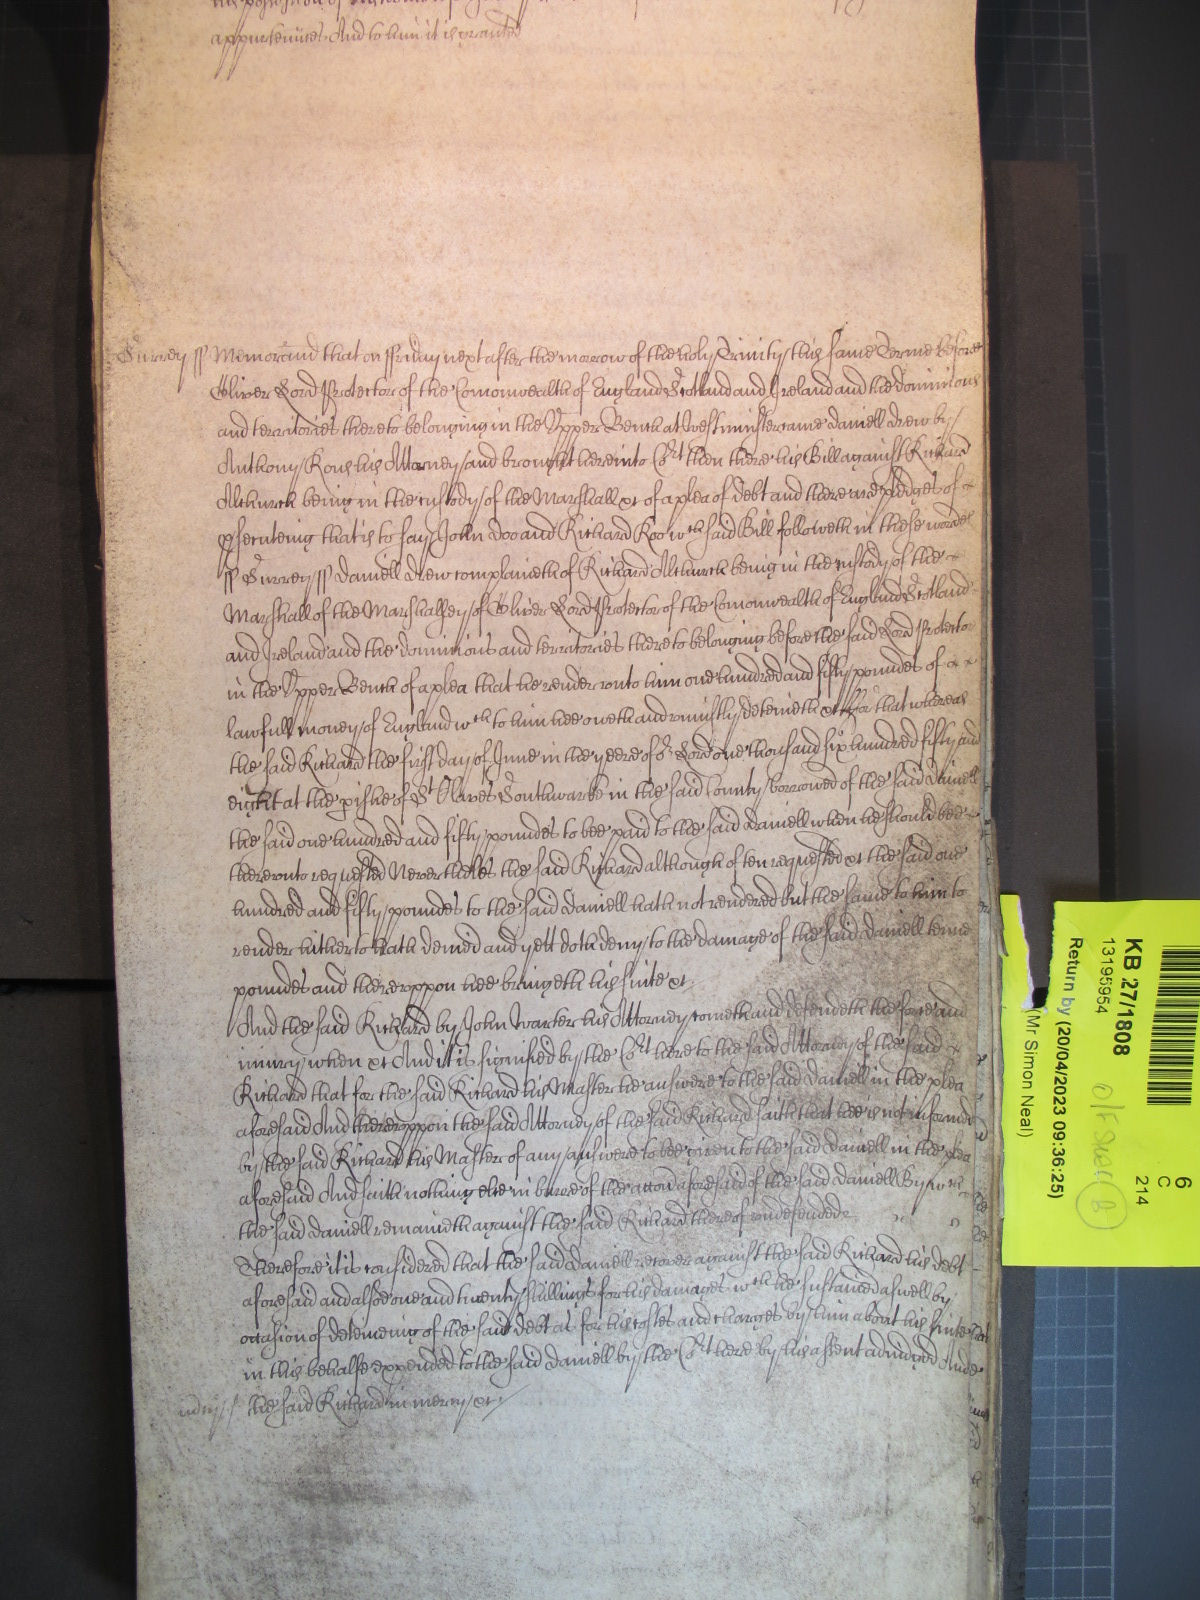 appurtenñces And to him it is granted
Surrey ss Memorand that on ffriday next after the morrow of the holy Trinity this same Terme before
Oliver Lord Protector of the Comonwealth of England Scotland and Ireland and the dominions
and territories thereto belonging in the Upper Bench at Westminster came Daniell Drew by
Anthony Rous his Attorney and brought here into Cort then there his Bill against Richard
Alchurch being in the custody of the Marshall &c of a plea of debt and there are pledges of
psecuteing that is to say John Doo and Richard Roo wch said Bill followeth in these words
ss Surrey ss Daniell Drew complaineth of Richard Alchurch being in the custody of the
Marshall of the Marshalsey of Oliver Lord Protector of the Comonwealth of England Scotland
and Ireland and the dominions and territories thereto belonging before the said Lord Protector
in the Upper Bench of a plea that he render unto him one hundred and fifty poundes of
lawfull money of England wch to him hee oweth and uniustly deteineth &c ffor that whereas
the said Richard the first day of June in the yeere of or Lord one thousand six hundred fifty and
eight at the pishe of St Olaves Southwarke in the said County borrowed of the said Daniell
the said one hundred and fifty poundes to bee paid to the said Daniell when he should bee
thereunto requested Neverthelés the said Richard although often requested &c the said one
hundred and fifty poundes to the said Daniell hath not rendered but the same to him to
render hitherto hath denied and yett doth deny to the damage of the said Daniell tenne
poundes and thereuppon hee bringeth his suite &c
And the said Richard by John Warter his Attorney cometh and defendeth the force and
iniury when &c And it is signified by the Cort here to the said Attorney of the said
Richard that for the said Richard his Master he answere to the said Daniell in the plea
aforesaid And thereuppon the said Attorney of the said Richard saith that hee is not informed
by the said Richard his Master of any answere to bee given to the said Daniell in the plea
aforesaid And saith nothing else in barre of the accon aforesaid of the said Daniell By wch
the said Daniell remaineth against the said Richard thereof undefended
Therefore it is considered that the said Daniell recover against the said Richard his debt
aforesaid and alsoe one and twenty shillings for his damages wch he sustained aswell by
occasion of deteineing of the said debt as for his costes and charges by him about his suite
in this behalfe expended to the said Daniell by the Cort here by his assent adiudged And
the said Richard in mercy &c
KB 27/1808
13195954
Return by (20/04/2023 09:36:25)
(Mr Simon Neal)
6
C
214
B